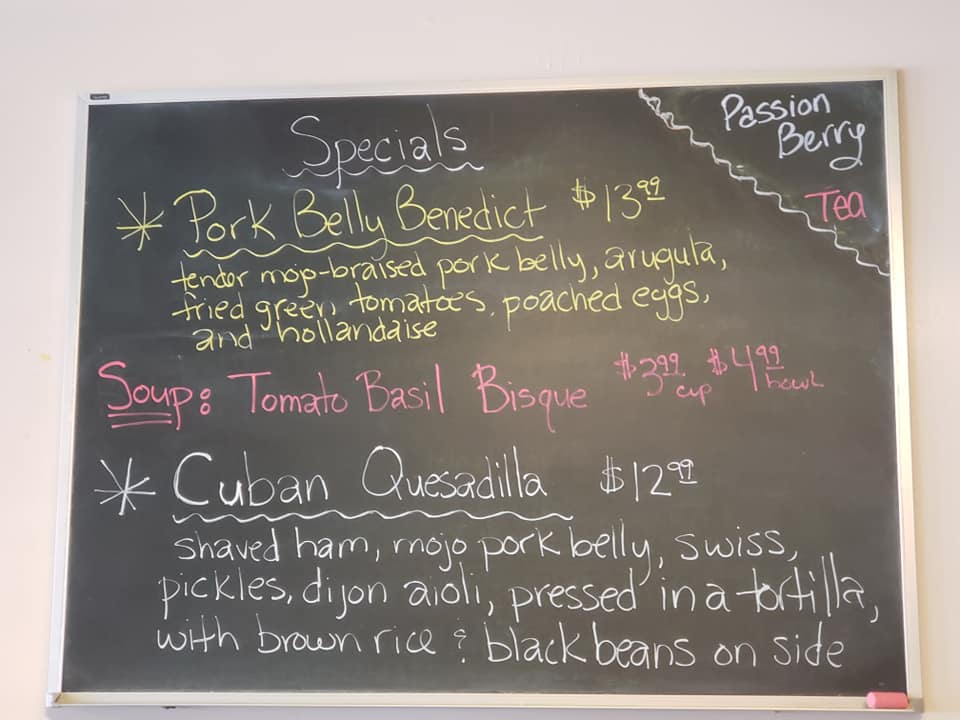 Specials
Passion
Berry
Tea
* Pork Belly Benedict $13.99
tender mojo-braised pork belly, arugula,
fried green tomatoes, poached eggs,
and hollandaise
Soup: Tomato Basil Bisque $3.99 cup $4.99 bowl
* Cuban Quesadilla $12.99
shaved ham, mojo pork belly, swiss,
pickles, dijon aioli, pressed in a tortilla,
with brown rice & black beans on side